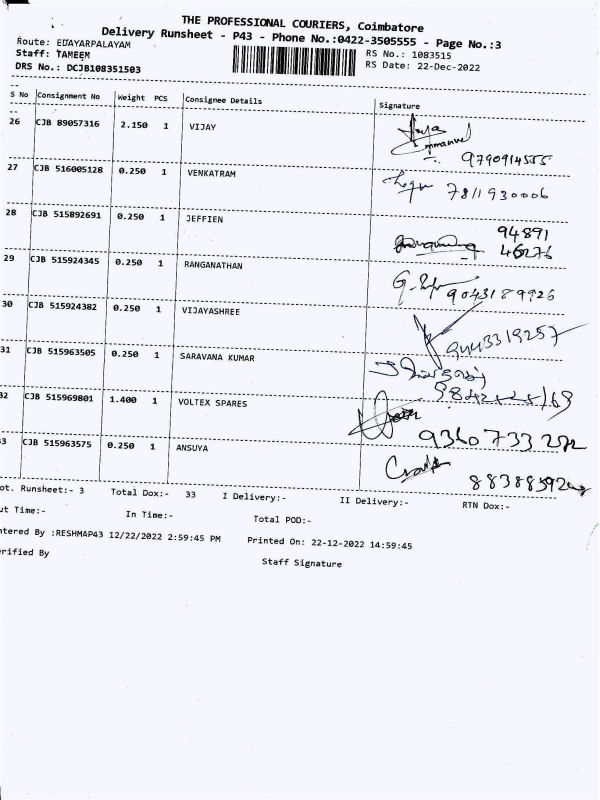 THE PROFESSIONAL COURIERS, Coimbatore
Delivery Runsheet - P43 - Phone No.:0422-3505555 - Page No.:3
Route: EDAYARPALAYAM
RS No.: 1083515
Staff: TAMEEM
RS Date: 22-Dec-2022
DRS No.: DCJB108351503
S No Consignment No Weight PCS Consignee Details Signature
26 CJB 89057316 2.150 1 VIJAY
Emmanuel
9790914555
27 CJB 516005128 0.250 1 VENKATRAM 7811930006
28 CJB 515892691 0.250 1 JEFFIEN 94891
46276
29 CJB 515924345 0.250 1 RANGANATHAN 9043189926
30 CJB 515924382 0.250 1 VIJAYASHREE 9443319257
31 CJB 515963505 0.250 1 SARAVANA KUMAR
32 CJB 515969801 1.400 1 VOLTEX SPARES
9360733272
33 CJB 515963575 0.250 1 ANSUYA
ot. Runsheet:- 3 Total Dox:- 33 I Delivery:- II Delivery:- RTN Dox:-
ut Time:- In Time:- Total POD:-
ntered By :RESHMAP43 12/22/2022 2:59:45 PM Printed On: 22-12-2022 14:59:45
erified By Staff Signature